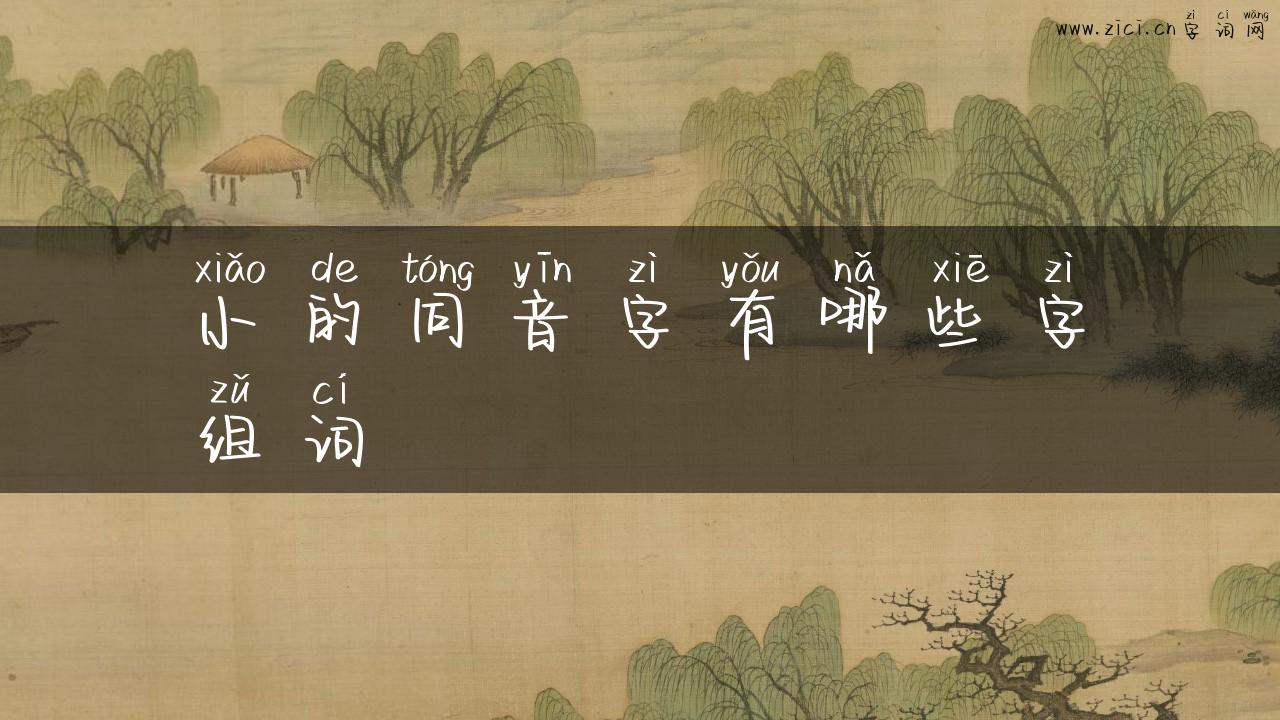 zì cí wǎng
www.zici.cn 字 词 网
xiǎo de tóng yīn zì yǒu nǎ xiē zì
小 的 同 音 字 有 哪 些 字
zǔ cí
组 词